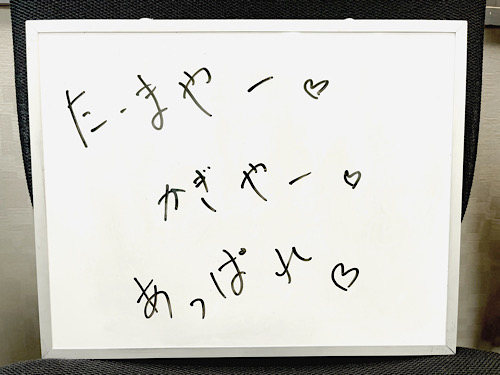 たーまやー♡
かぎやー♡
あっぱれ♡